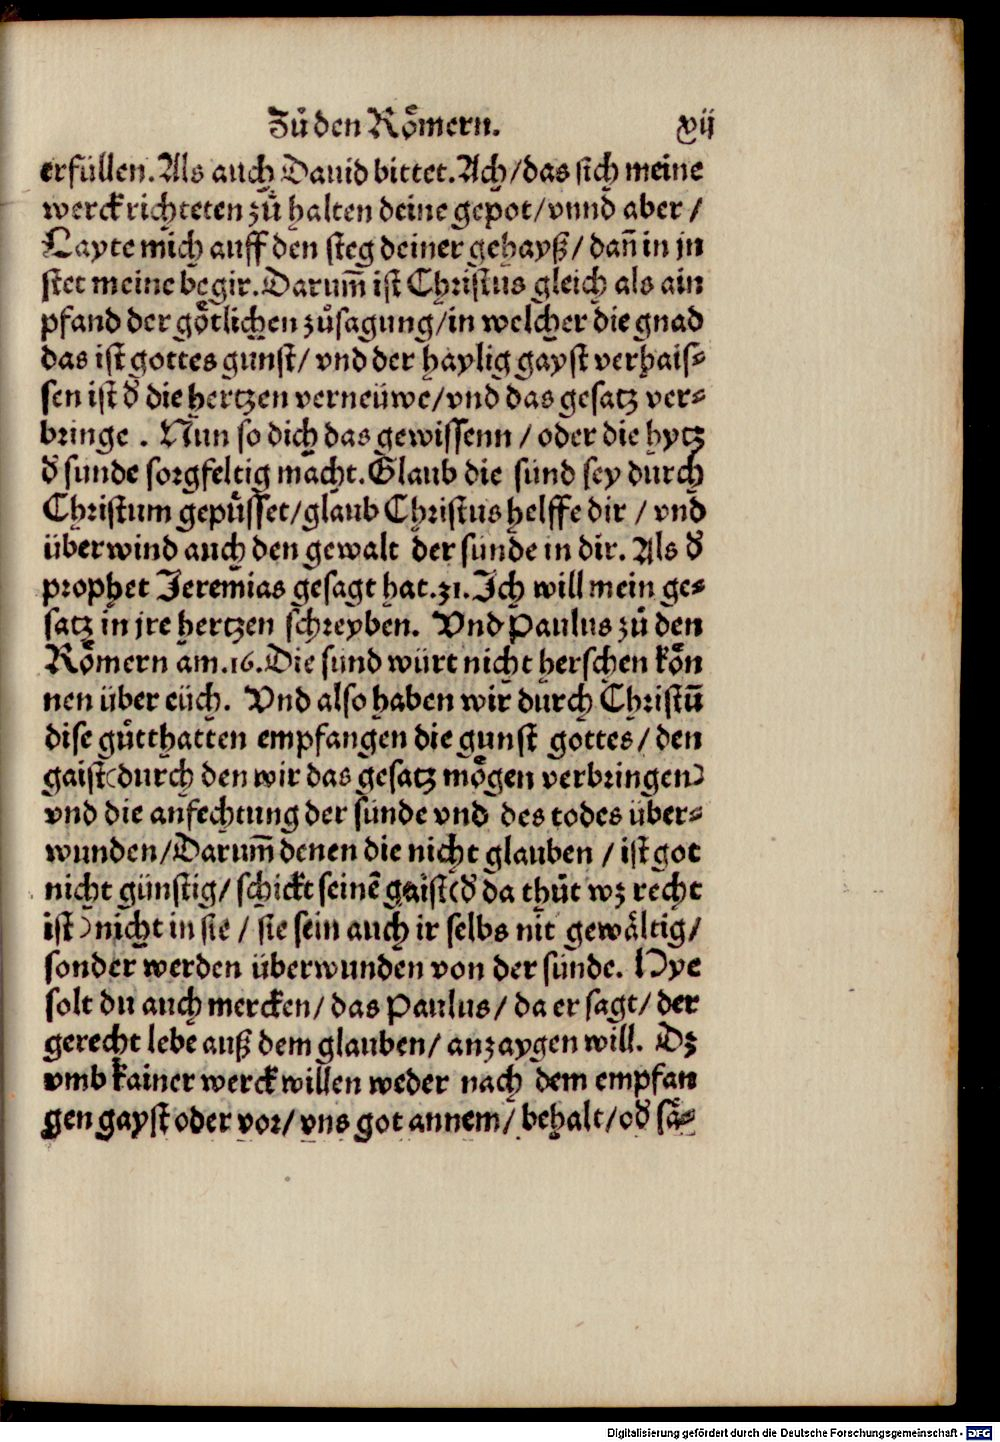 Zůden Rŏmern. xij
erfüllen. Als auch Dauid bittet. Ach/das sich meine
werck richteten zů halten deine gepot/vnnd aber/
Layte mich auff den steg deiner gehayß/dañ in jn
stet meine begir. Darum̃ ist Christus gleich als ain
pfand der gŏtlichen zůsagung/in welcher die gnad
das ist gottes gunst/vnd der haylig gayst verhais⸗
sen ist ď die hertzen verneüwe/vnd das gesatz ver⸗
bringe. Nun so dich das gewissenn/oder die hytz
ď sunde sorgfeltig macht. Glaub die sünd sey durch
Christum gepüsset/glaub Christus helffe dir/vnd
überwind auch den gewalt der sunde in dir. Als ď
prophet Jeremias gesagt hat. 31. Ich will mein ge⸗
satz in jre hertzen schreyben. Vnd Paulus zů den
Rŏmern am. 16. Die sund würt nicht herschen kŏn
nen über eüch. Vnd also haben wir durch Christū
dise gůtthatten empfangen die gunst gottes/den
gaist(durch den wir das gesatz mŏgen verbringen)
vnd die anfechtung der sunde vnd des todes über⸗
wunden/Darum̃ denen die nicht glauben/ist got
nicht günstig/schickt seinē gaist(ď da thůt wz recht
ist)nicht in sie/sie sein auch ir selbs nit gewåltig/
sonder werden überwunden von der sünde. Hye
solt du auch mercken/das Paulus/da er sagt/der
gerecht lebe auß dem glauben/anzaygen will. Dz
vmb kainer werck willen weder nach dem empfan
gen gayst oder vor/vns got annem/behalt/oď så⸗
Digitalisierung gefördert durch die Deutsche Forschungsgemeinschaft - DFG